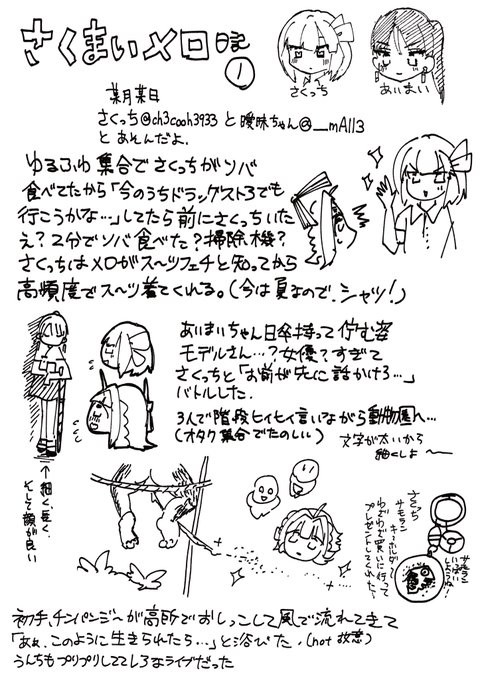 さくまいメロ日記
①
さくっち
あいまい
某月某日
さくっち@ch3cooh3933 と 曖昧ちゃん@__mAII3
と あそんだよ.
ゆるふわ集合でさくっちがソバ
食べてたから「今のうちドラッグストアでも
行こうかな…」してたら前にさくっちいた
え？2分でソバ食べた？掃除機？
さくっちはメロがスーツフェチと知ってから
高頻度でスーツ着てくれる。(今は夏なので、シャツ!)
あいまいちゃん日傘持って佇む姿
モデルさん…？女優？すぎて
さくっちと「お前が先に話かけろ…」
バトルした.
3人で階段ヒイヒイ言いながら動物園へ…
(オタク集合でたのしい)
文字が太いから
細くしよ〜
↑細く、長く、
そして顔が良い
さくっち
サモラン
キーホルダー
わざわざ買いに行って
プレゼントしてくれた!
初手、チンパンジーが高所でおしっこして風で流れてきて
「あぁ、このように生きられたら…」と浴びた.(not 故意)
うんちもプリプリしててしろなライブだった